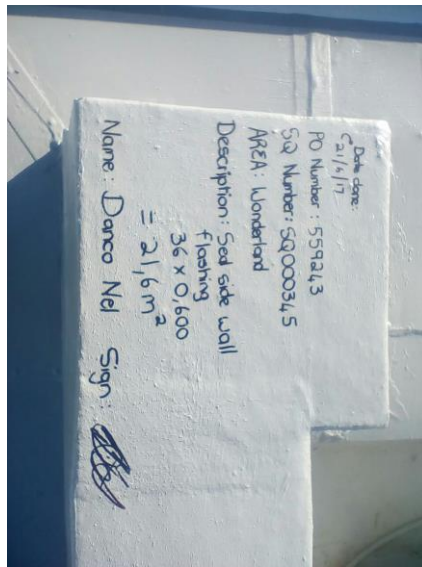 Date done:
(21/4/17
PO Number: 559243
SQ Number: SQ000345
AREA: Wonderland
Description: Seal side wall
flashing
36 x 0,600
= 21,6m²
Name: Danco Nel Sign: